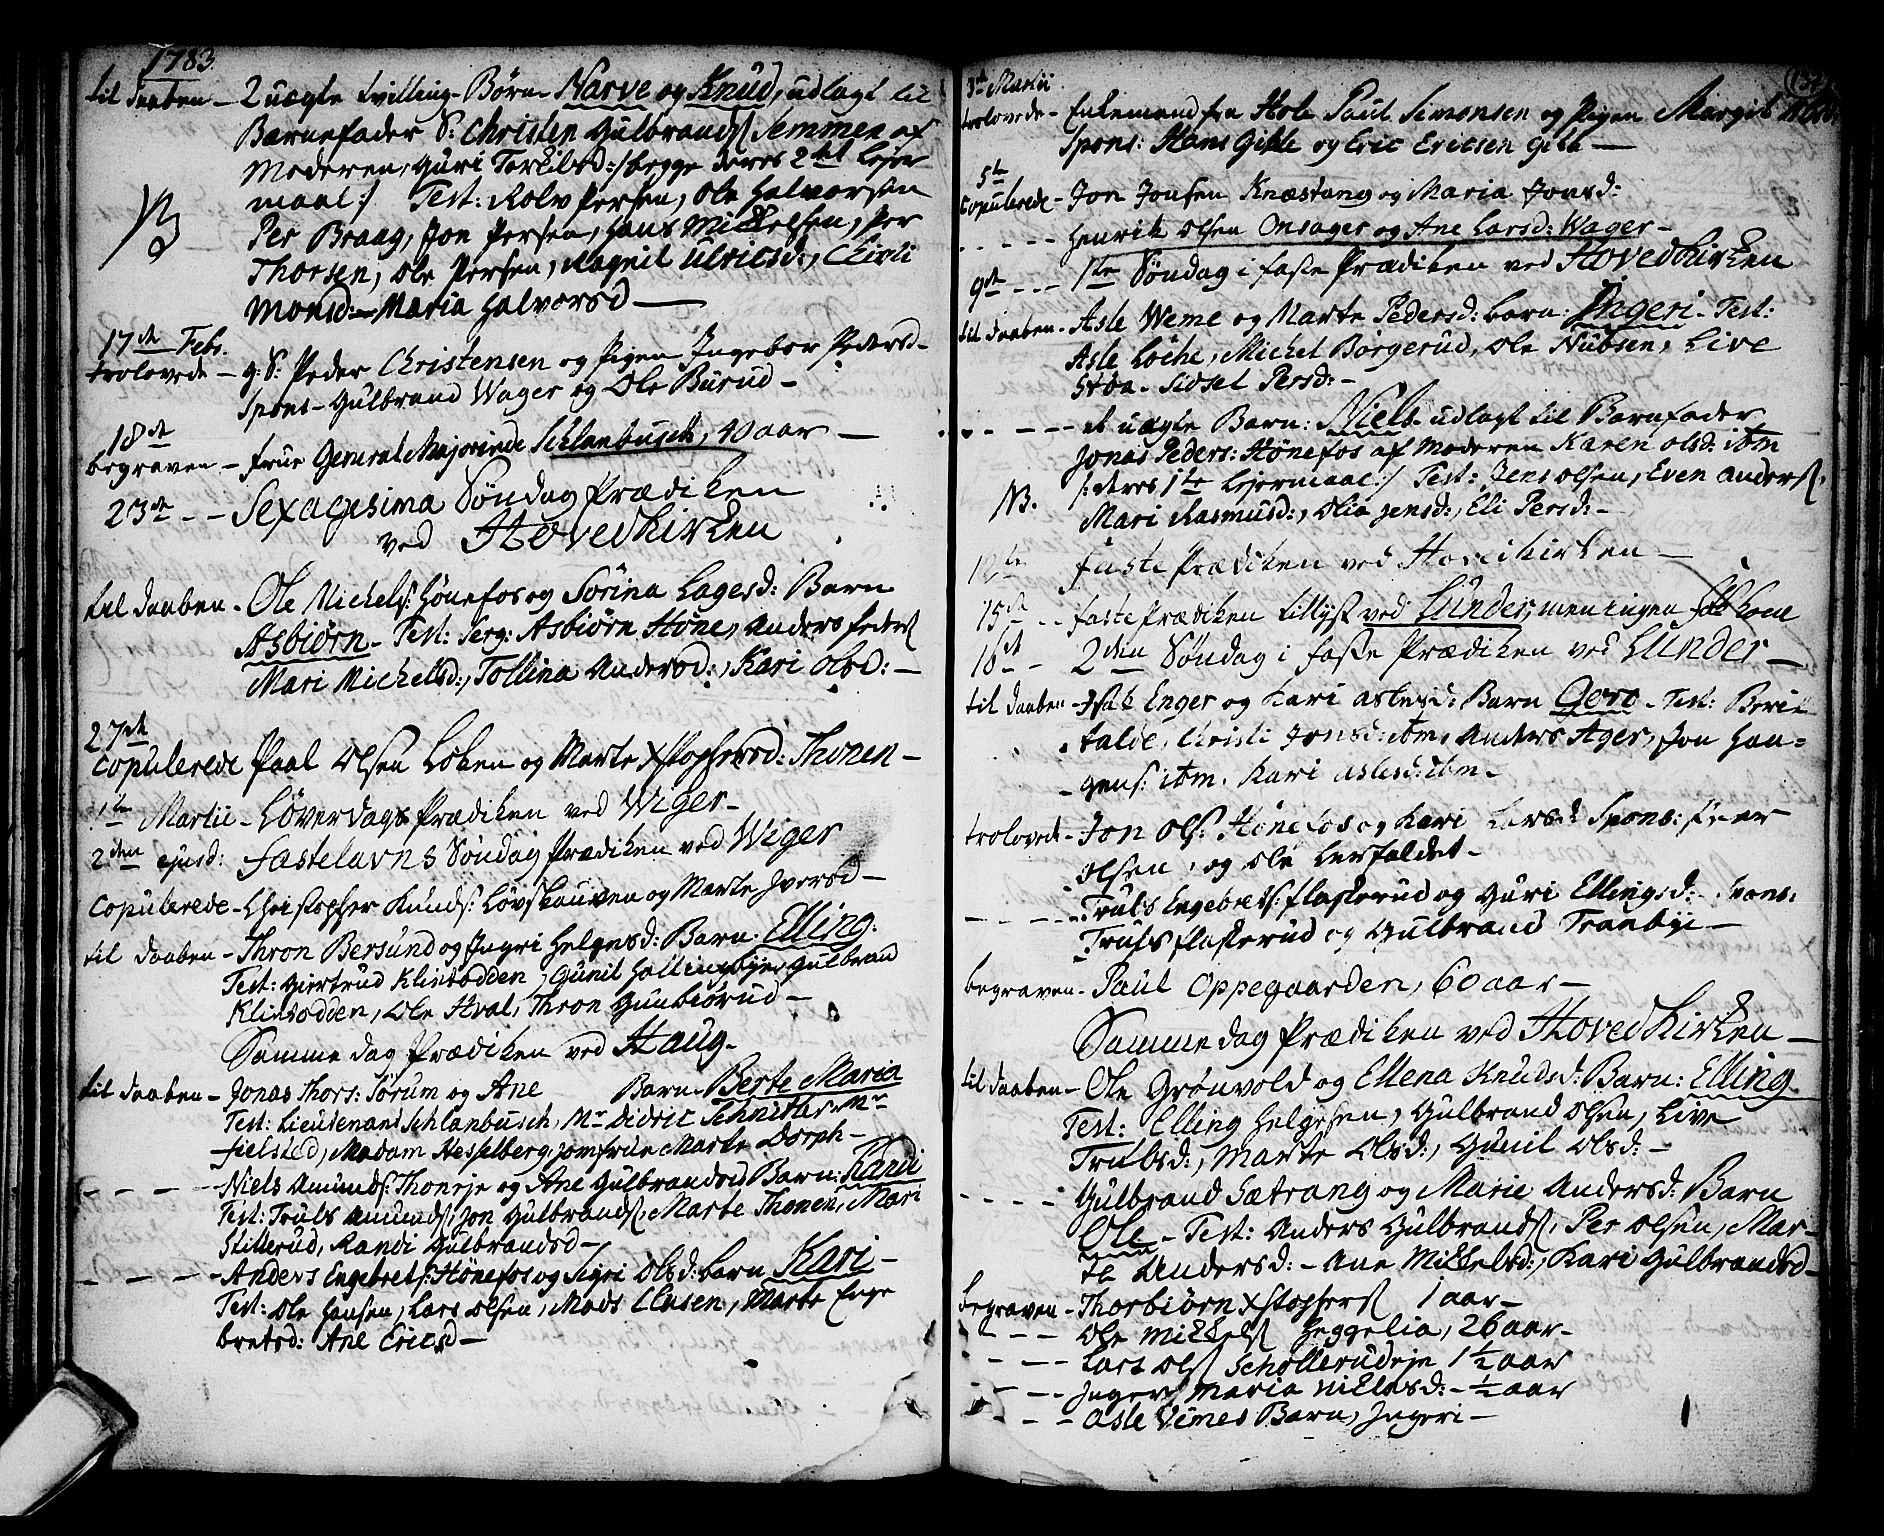 1783.
til daaben - 2 uægte tvilling-Børn Narve og Knud, udlagt til
Barnefader S: Christen Gulbrands Semmen af
Moderen, Guri Torkilsd: /: begge deres 2det Lejer
maal :/ Test: Rolv Persen, Ole Halvorsen
NB
Per Braag, Jon Persen, Hans Mickelsen, Per
Thorsen, Ole Persen, Ragnil Ulricsd:, Chirsti
Monsd: Maria Halvorsd -
17de Febr.
trolovede - g: S: Peder Christensen og Pigen Ingebor Pedersd -
Spons - Gulbrand Wager og Ole Burud -
18de
begraven - Frue General Majorinde Schlanbusch, 40 aar -
23de - - Sexagesima Søndag Prædiken
ved Hovedkirken
til daaben - Ole Michels: Hønefos og Sørina Lagesd: Barn
Asbiørn - Test: Serg: Asbiørn Høne, Anders Peders
Mari Michelsd:, Tollina Andersd:, Kari Olsd: -
27de
Copulerede Paal Olsen Loken og Marte Xstophersd: Thonen -
1te Martii - Løverdags Prædiken ved Wiger -
2den ejusd: Fastelavns Søndag Prædiken ved Wiger
Copulerede - Christopher Knuds: Løvskouven og Marte Iversd -
til daaben - Thron Bersund og Ingri Helgesd: Barn: Elling.
Test: Giertrud Klintodden, Gunil Hallingbye, Gulbrand
Klintodden, Ole Hval, Thron Gunbiørud -
Samme dag Prædiken ved Haug.
til daaben - Jonas Thors: Sørum og Ane Barn Berte Maria
Test: Lieutenant Schlanbusch, Mr Didric Schnitler Mr
Fielsted, Madam Hesselberg, Jomfrue Marte Dorph -
- - - - Niels Amunds: Thoneje og Ane Gulbrandsd Barn: Randi
Test: Truls Amunds, Jon Gulbrands, Marte Thonen, Mari
Stillerud, Randi Gulbrandsd -
- - - - Anders Engebrets: Hønefos og Sigri Olsd: Barn Kari -
Test: Ole Hansen, Lars Olsen, Mads Clasen, Marte Enge
bretsd: Ane Ericsd -
3de Martii
trolovede - Enkemand fra Hole Paul Simonsen og Pigen Margit
Spons: Hans Gikle og Eric Ericsen Gikle -
5te
Copulerede - Jon Jonsen Knæstang og Maria Jonsd:
- - - - Henrik Olsen Onsager og Ane Larsd: Wager -
9de - - - 1te Søndag i Faste Prædiken ved Hovedkirken
til daaben - Asle Weme og Marte Pedersd: Barn: Ingeri - Test:
Asle Løche, Michel Borgerud, Ole Nubsen, Live
Støa - Sidsel Persd: -
- - - - et uægte Barn: Niels udlagt til Barnfader
Jonas Peders: Hønefos af Moderen Karen Olsd: ibm
NB. /: deres 1te Lejermaal :/ Test: Jens Olsen, Even Anders,
Mari Rasmusd:, Olia Jensd:, Eli Persd: -
12te Faste Prædiken ved Hovedkirken -
15de - - Faste Prædiken tillyst ved Lunder, men ingen folk kom
16de - 2den Søndag i Faste Prædiken ved Lunder -
til daaben - Isak Enger og Kari Aslesd: Barn Goro - Test: Berit
Christi Jonsd: ibm, Anders Ager, Jon Haa=
gens: ibm. Kari Aslesd: ibm -
trolovede - Jon Ols: Hønefos og Kari Larsd: Spons: Peer
Olsen, og Ole Lerfaldet -
- - - - Truls Engebrets: Flaskerud og Guri Ellingsd: - Spons:
Truls Flaskerud og Gulbrand Tranbye -
begraven - Paul Oppegaarden, 60 aar -
Samme dag Prædiken ved Hovedkirken -
til daaben - Ole Grønvold og Ellena Knudsd: Barn: Elling.
Test: Elling Helgesen, Gulbrand Olsen, Live
Trulsd:, Marte Olsd:, Gunil Olsd: -
- - - - Gulbrand Sætrang og Marie Andersd: Barn
Ole - Test: Anders Gulbrands, Per Olsen, Mar-
te Andersd: - Ane Mickelsd:, Kari Gulbrandsd -
begraven - Thorbiørn Xstophers 1 aar -
- - - Ole Mickels Heggelia, 26 aar -
- - - Lars Ols Schollerudeje 1 1/2 aar
- - - Inger Maria Nielsd: - 1/2 aar
- - - Asle Vemes Barn, Ingeri -